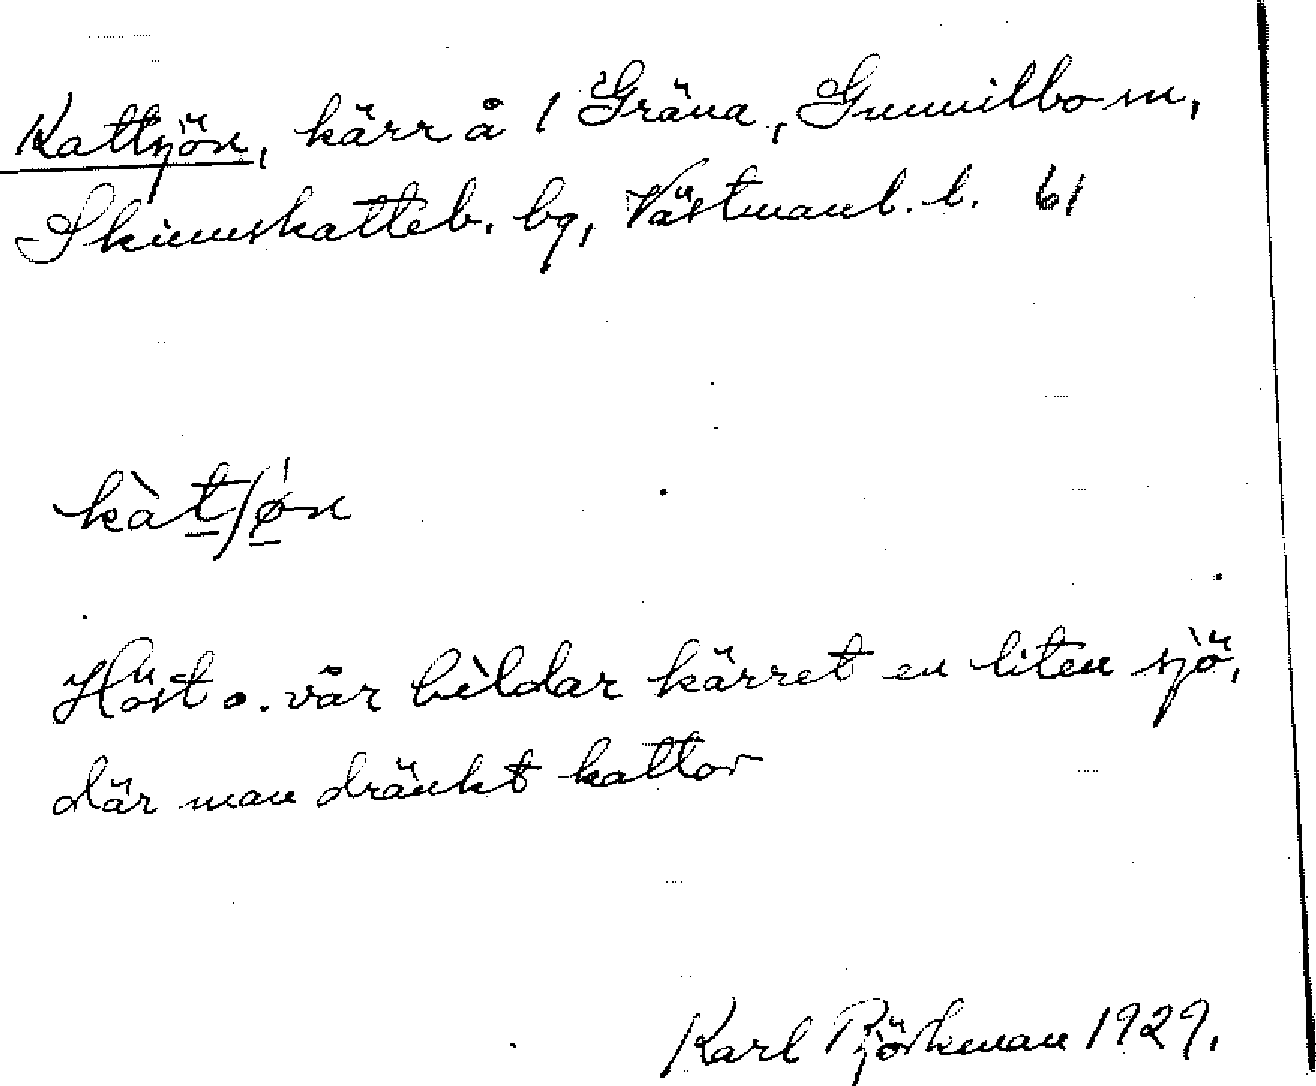 Kattsjön, kärr å 1 Gräna, Gunnilbo sn,
Skinnskatteb. bg, Västmanl. l. 61
kàt/ø̀n
Höst o. vår bildar kärret en liten sjö,
där man dränkt kattor
Karl Björkman 1929.